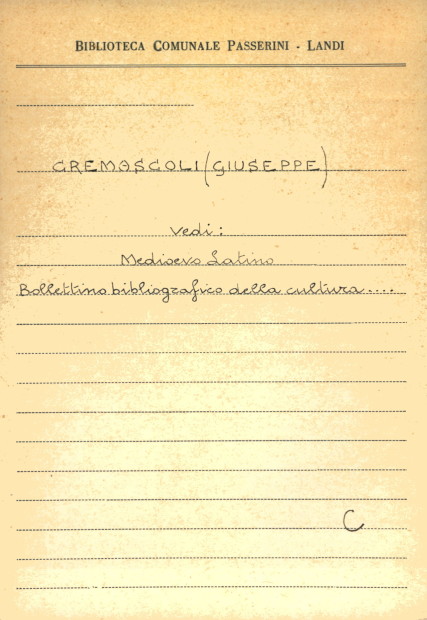 BIBLIOTECA COMUNALE PASSERINI - LANDI
CREMASCOLI (GIUSEPPE)
Vedi:
Medioevo Latino
Bollettino bibliografico della cultura....
C